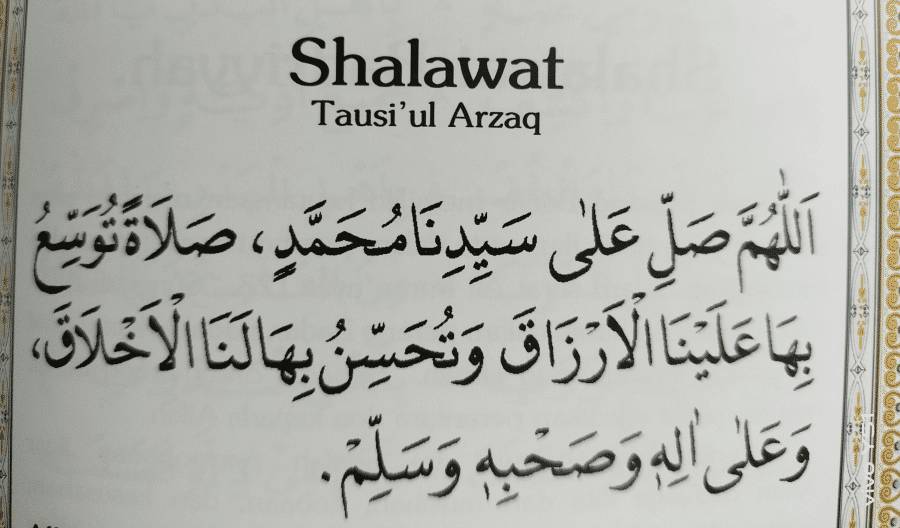 Shalawat
Tausi'ul Arzaq
اَللّٰهُمَّ صَلِّ عَلٰى سَيِّدِنَا مُحَمَّدٍ، صَلَاةً تُوَسِّعُ
بِهَا عَلَيْنَا الْاَرْزَاقَ وَتُحَسِّنُ بِهَا لَنَا الْاَخْلَاقَ،
وَعَلٰى اٰلِهٖ وَصَحْبِهٖ وَسَلِّمْ.